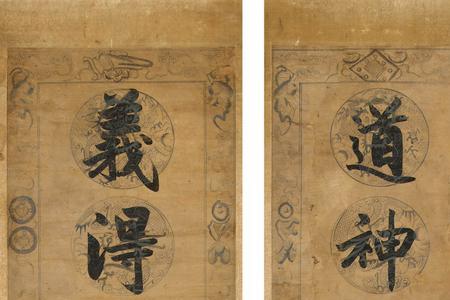 道神
義得